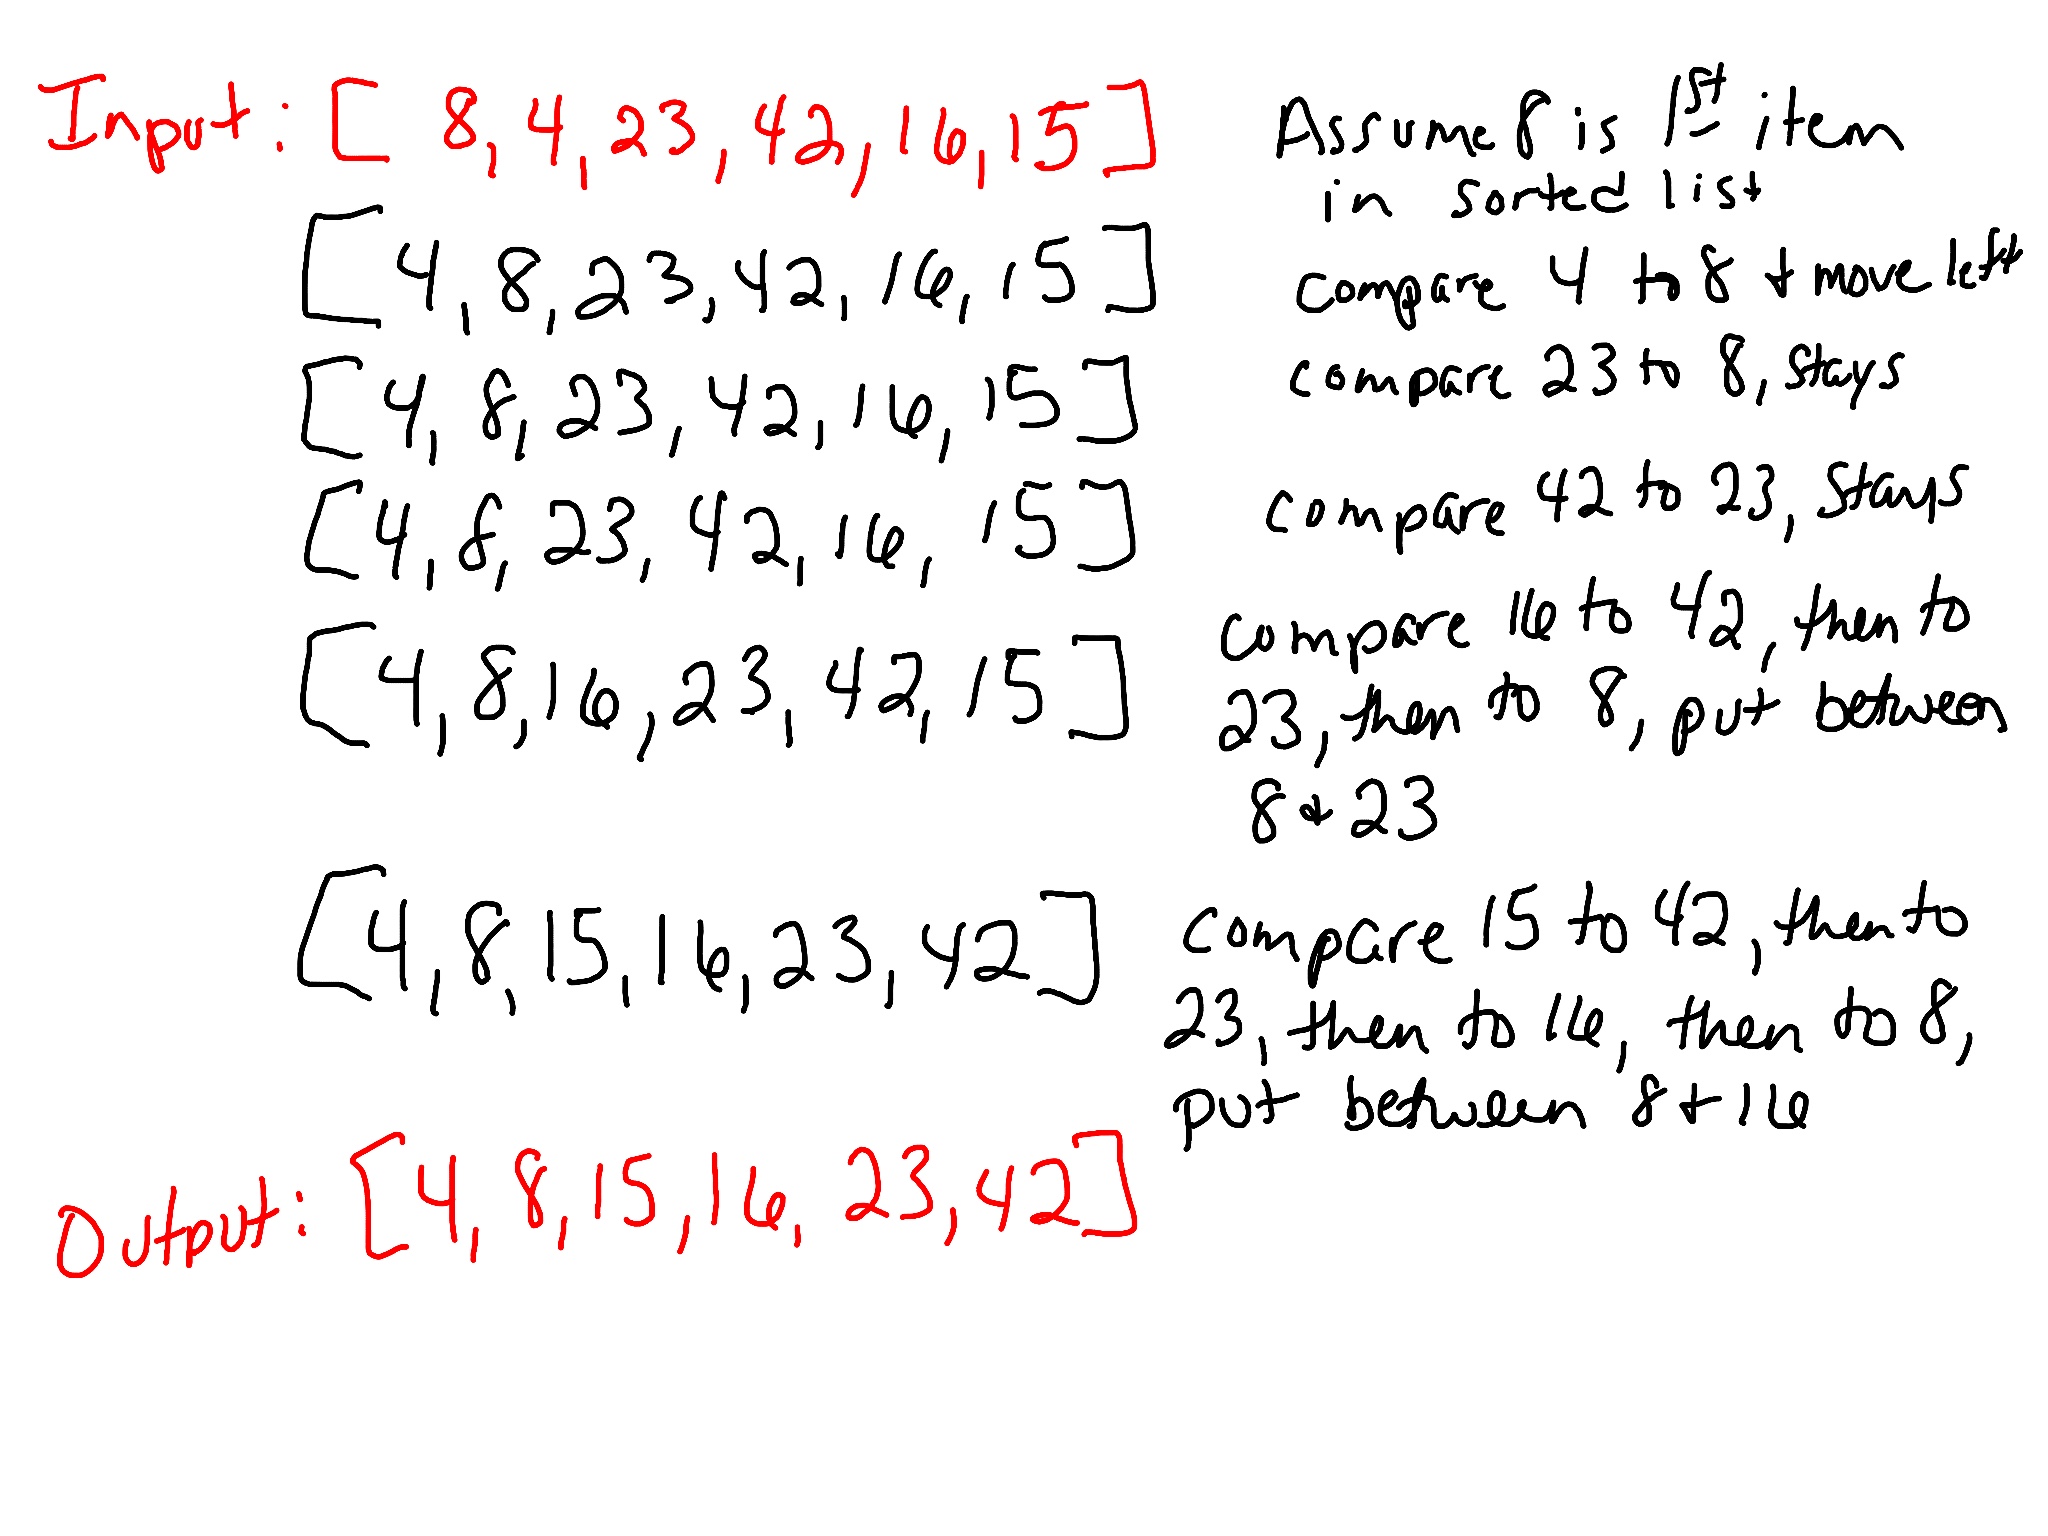 Input: [ 8, 4, 23, 42, 16, 15 ]
Assume 8 is 1st item
in sorted list
[ 4, 8, 23, 42, 16, 15 ]
compare 4 to 8 + move left
[ 4, 8, 23, 42, 16, 15 ]
compare 23 to 8, stays
[ 4, 8, 23, 42, 16, 15 ]
compare 42 to 23, stays
[ 4, 8, 16, 23, 42, 15 ]
compare 16 to 42, then to
23, then to 8, put between
8 + 23
[ 4, 8, 15, 16, 23, 42 ]
compare 15 to 42, then to
23, then to 16, then to 8,
put between 8 + 16
Output: [ 4, 8, 15, 16, 23, 42 ]